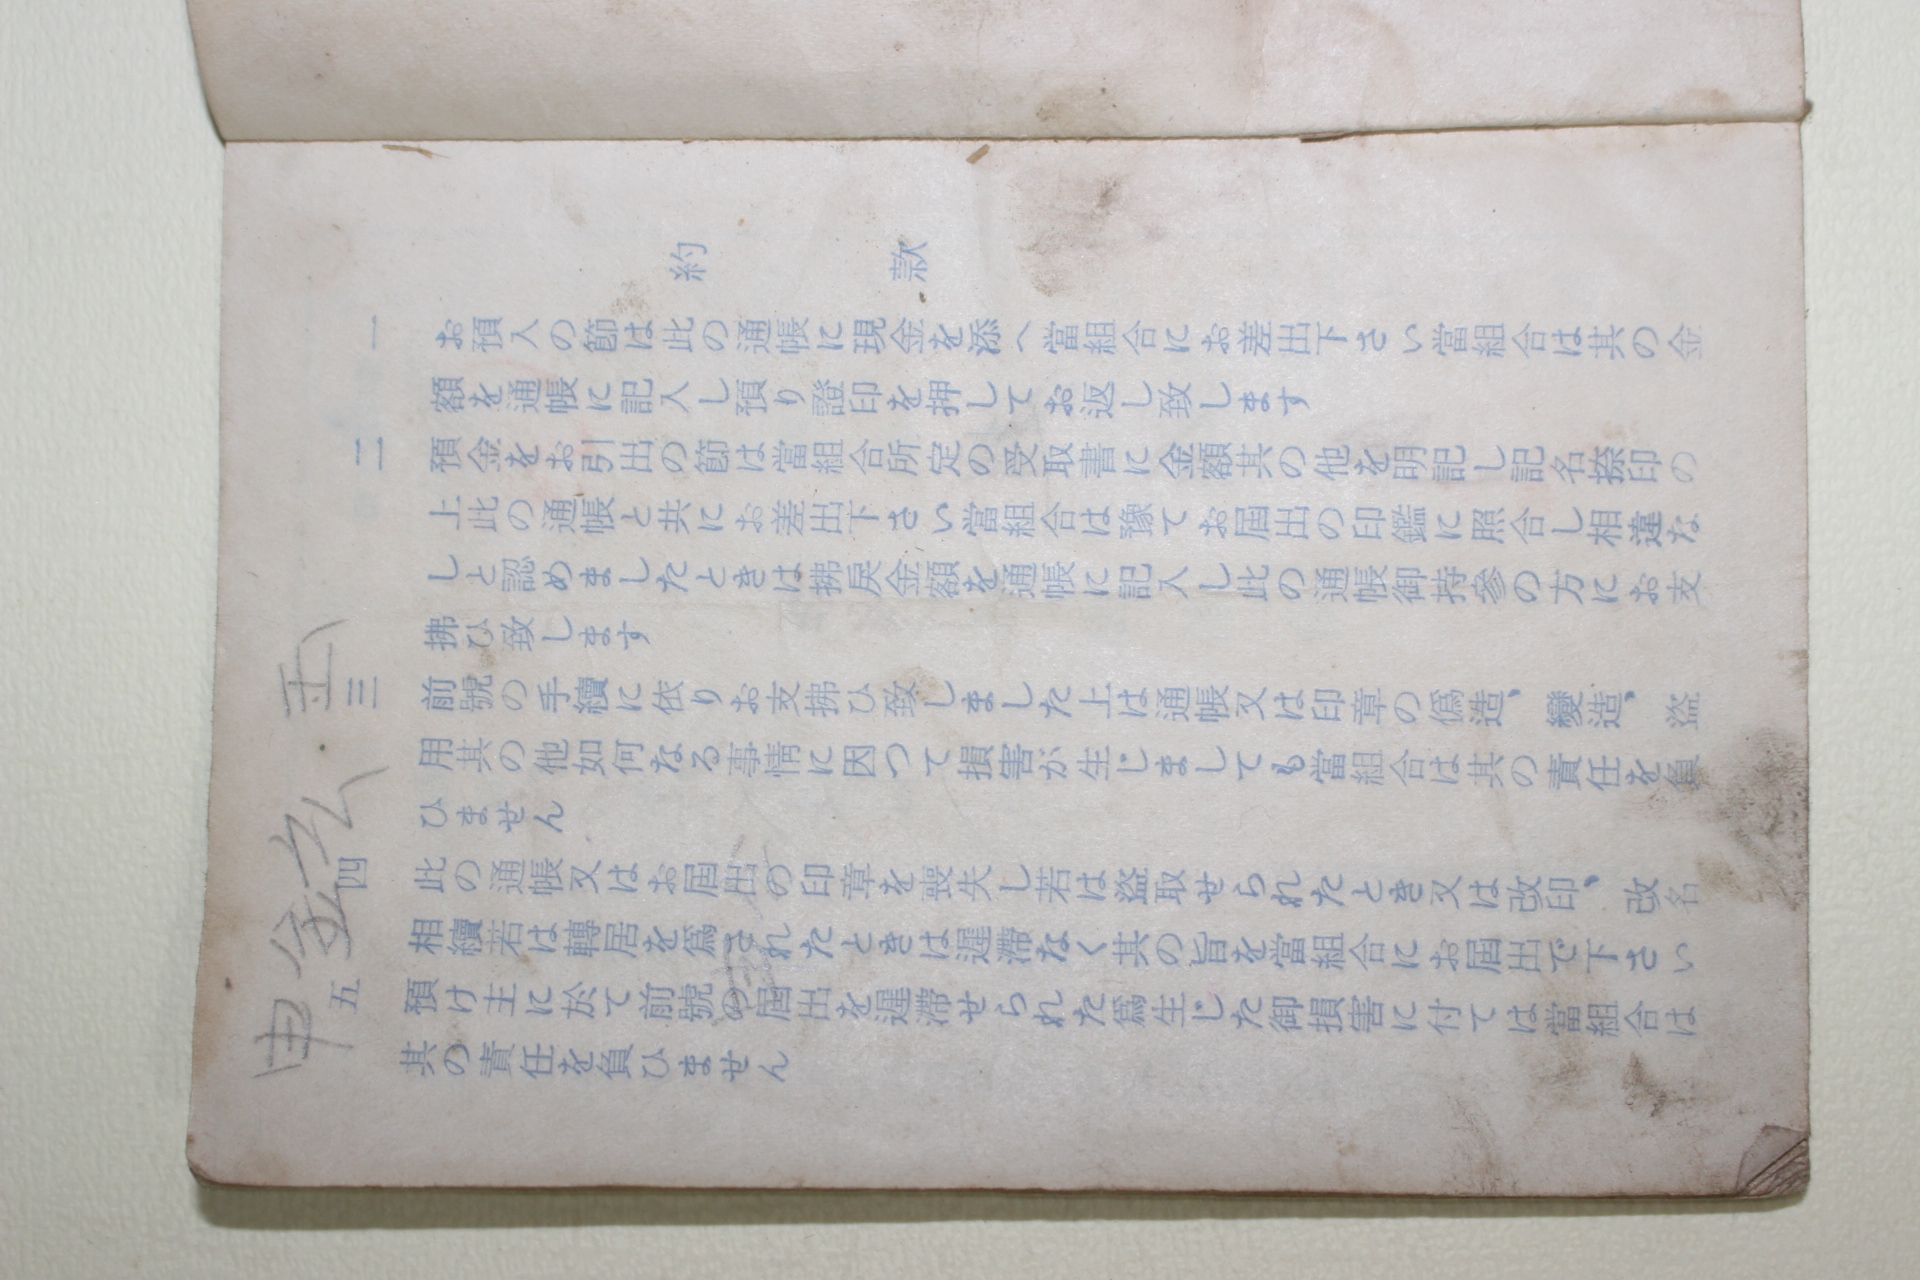 約款
一 お預入の節は此の通帳に現金を添へ當組合にお差出下さい當組合は其の金
額を通帳に記入し預り證印を押してお返し致します
二 預金をお引出の節は當組合所定の受取書に金額其の他を明記し記名捺印の
上此の通帳と共にお差出下さい當組合は豫てお屆出の印鑑に照合し相違な
しと認めましたときは拂戾金額を通帳に記入し此の通帳御持參の方にお支
拂ひ致します
三 前號の手續に依りお支拂ひ致しました上は通帳又は印章の僞造、變造、盜
用其の他如何なる事情に因つて損害が生じましても當組合は其の責任を負
ひません
四 此の通帳又はお屆出の印章を喪失し若は盜取せられたとき又は改印、改名
相續若は轉居を爲されたときは遲滯なく其の旨を當組合にお屆出で下さい
五 預け主に於て前號の屆出を遲滯せられた爲生じた御損害に付ては當組合は
其の責任を負ひません
申